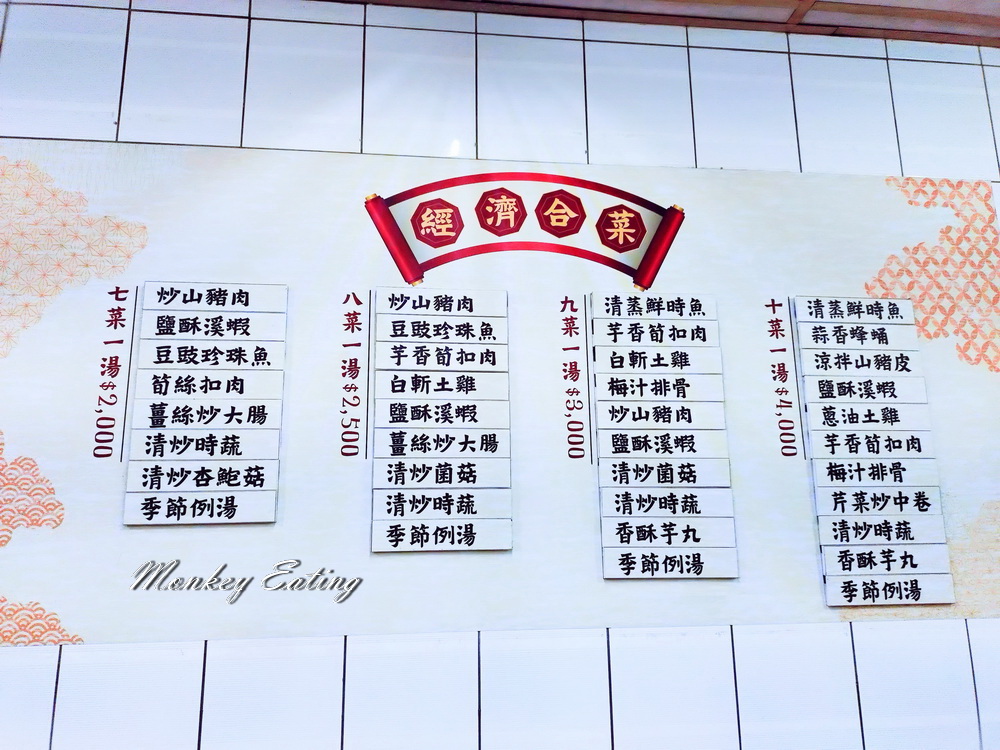 經濟合菜
七菜一湯$2,000
炒山豬肉
鹽酥溪蝦
豆豉珍珠魚
筍絲扣肉
薑絲炒大腸
清炒時蔬
清炒杏鮑菇
季節例湯
八菜一湯$2,500
炒山豬肉
豆豉珍珠魚
芋香筍扣肉
白斬土雞
鹽酥溪蝦
薑絲炒大腸
清炒菌菇
清炒時蔬
季節例湯
九菜一湯$3,000
清蒸鮮時魚
芋香筍扣肉
白斬土雞
梅汁排骨
炒山豬肉
鹽酥溪蝦
清炒菌菇
清炒時蔬
香酥芋丸
季節例湯
十菜一湯$4,000
清蒸鮮時魚
蒜香蜂蛹
涼拌山豬皮
鹽酥溪蝦
蔥油土雞
芋香筍扣肉
梅汁排骨
芹菜炒中卷
清炒時蔬
香酥芋丸
季節例湯
Monkey Eating